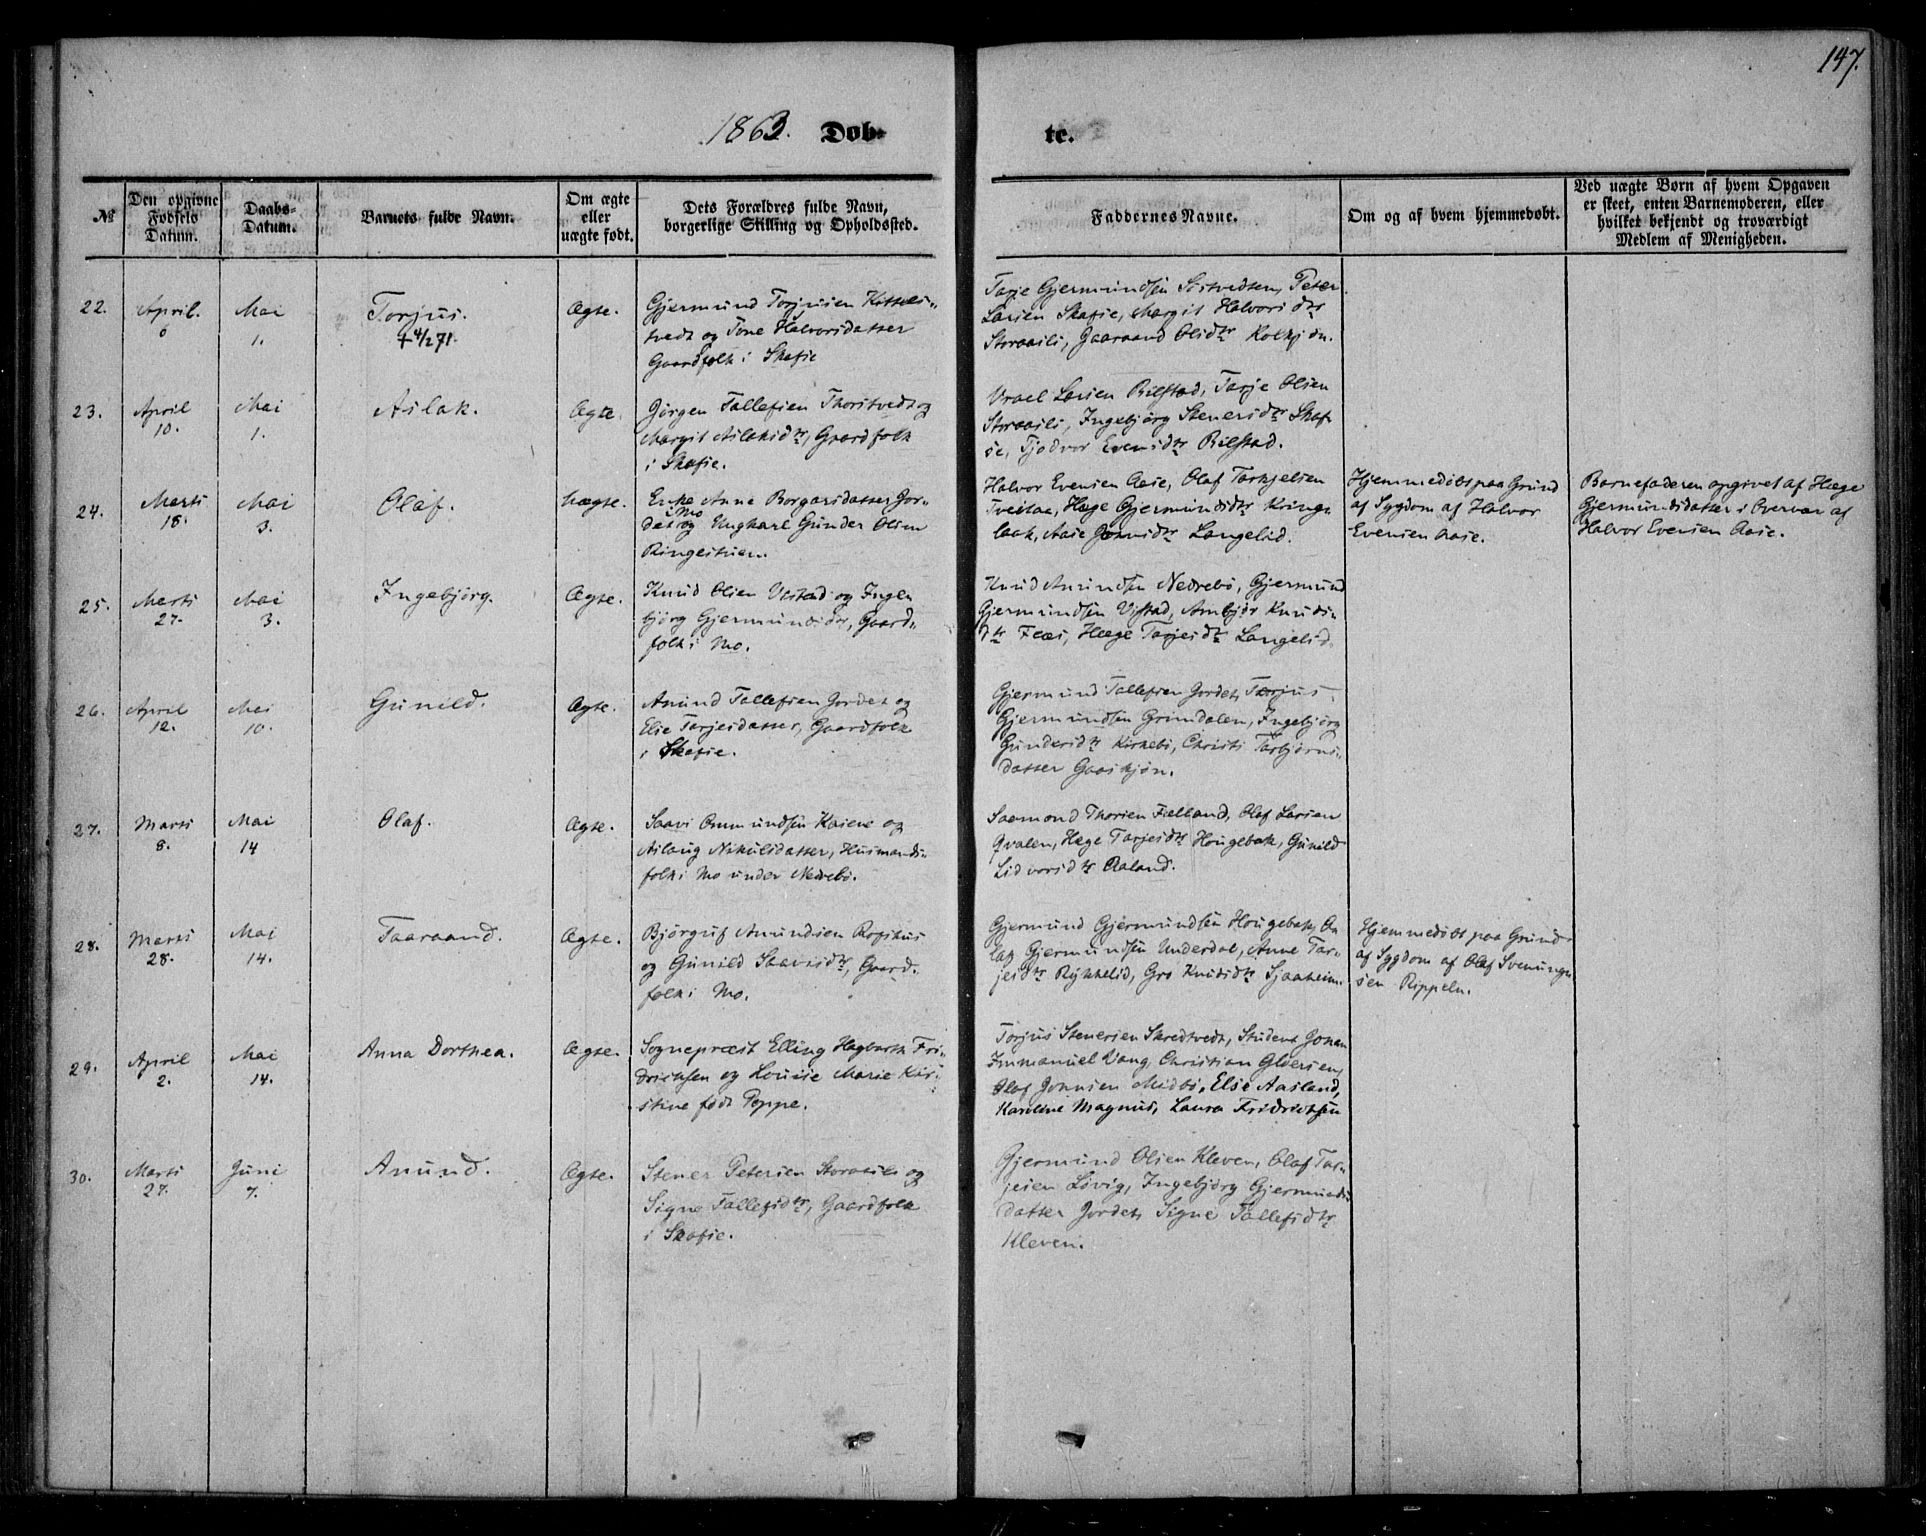 147.
1863. Døb-
te.
№
Den opgivne
Fødsels
Datum.
Daabs-
Datum.
Barnets fulde Navn.
Om ægte
eller
uægte født.
Dets Forældres fulde Navn,
borgerlige Stilling og Opholdssted.
Faddernes Navne.
Om og af hvem hjemmedøbt.
Ved uægte Børn af hvem Opgaven
er skeet, enten Barnemoderen, eller
hvilket bekjendt og troværdigt
Medlem af Menigheden.
22.
April.
6
Mai
1.
Torjus.
✝ 4/2 71.
Ægte.
Gjermund Torjusen Kittels-
tvedt og Tone Halvorsdatter
Gaardfolk i Skafse
Tarje Gjermundsen Sostvedten, Peter
Larsen Skafse, Margit Halvorsdtr
Storaasli, Gaaraand Olsdtr
23.
April
10.
Mai
1.
Aslak.
Ægte.
Jørgen Tallefsen Thorstvedt og
Margit Aslaksdtr, Gaardfolk
i Skafse.
Vrael Larsen Bilstad, Tarje Olsen
Storaasli, Ingebjørg Stenersdtr Skaf-
se, Tjodvor Evensdtr Bilstad.
24.
Marts
18.
Mai
3.
Olaf.
Uægte.
Enke Anne Borgarsdatter Jor-
det i Mo og Ungkarl Gunder Olsen
Ringestuen.
Halvor Evensen Aase, Olaf Tarkjelsen
Tveitae, Hæge Gjermundsdtr Kringe-
laak, Aase Jonsdtr Langelid.
Hjemmedøbt paa Grund
af Sygdom af Halvor
Evensen Aase.
Barnefaderen opgivet af Hæge
Gjermundsdatter i Overvær af
Halvor Evensen Aase.
25.
Marts
27.
Mai
3.
Ingebjørg.
Ægte.
Knud Olsen Vistad og Inge-
bjørg Gjermundsdtr, Gaard-
folk i Mo.
Knud Amundsen Nedrebø, Gjermund
Gjermundsen Vistad, Anbjør Knuds-
dtr Flaas, Hæge Tarjesdtr Langelid.
26.
April
12.
Mai
10.
Gunild.
Ægte.
Anund Tallefsen Jordet og
Else Tarjesdatter, Gaardfolk
i Skafse.
Gjermund Tallefsen Jordet, Torjus
Gjermundsen Grimdalen, Ingebjørg
Gundersdtr Kirkebø, Christi Tarbjørns-
datter Gaaskjøn.
27.
Marts
8.
Mai
14
Olaf.
Ægte.
Saavi Ommundsen Kasene og
Aslaug Nikulsdatter, Husmands-
folk i Mo under Nedrebø.
Saamond Thorsen Fælland, Olaf Larsen
Qvalen, Hæge Tarjesdtr Hougebak, Gunild
Lidvorsdtr Raland.
28.
Marts
28.
Mai
14.
Taaraand.
Ægte.
Bjørguf Anundsen Rofshus
og Gunild Saavisdtr, Gaard-
folk i Mo.
Gjermund Gjermundsen Hougebak, O-
laf Gjermundsen Underdal, Anne Tar-
jesdtr Rykkelid, Gro Knudsdtr Sjaaheim.
Hjemmedøbt paa Grund
af Sygdom af Olaf Svenung-
sen Rippeln.
29.
April
2.
Mai
14.
Anna Dorthea.
Ægte.
Sognepræst Elling Hagbarth Fri-
drichsen og Lovise Marie Kir-
stine født Poppe.
Torjus Stenersen Skredtvedt, Student Johan
Immanuel Vang, Christian Gløersen,
Olaf Jonnsen Midbø, Else Aasland,
Karoline Magnus, Laura Fridrichsen
30.
Marts
27.
Juni
7.
Anund.
Ægte.
Stener Petersen Storaasli og
Signe Tallefsdtr, Gaardfolk
i Skafse.
Gjermund Olsen Kleven, Olaf Tar-
jesen Løvig, Ingebjørg Gjermunds-
datter Jordet, Signe Tallefsdtr
Kleven.